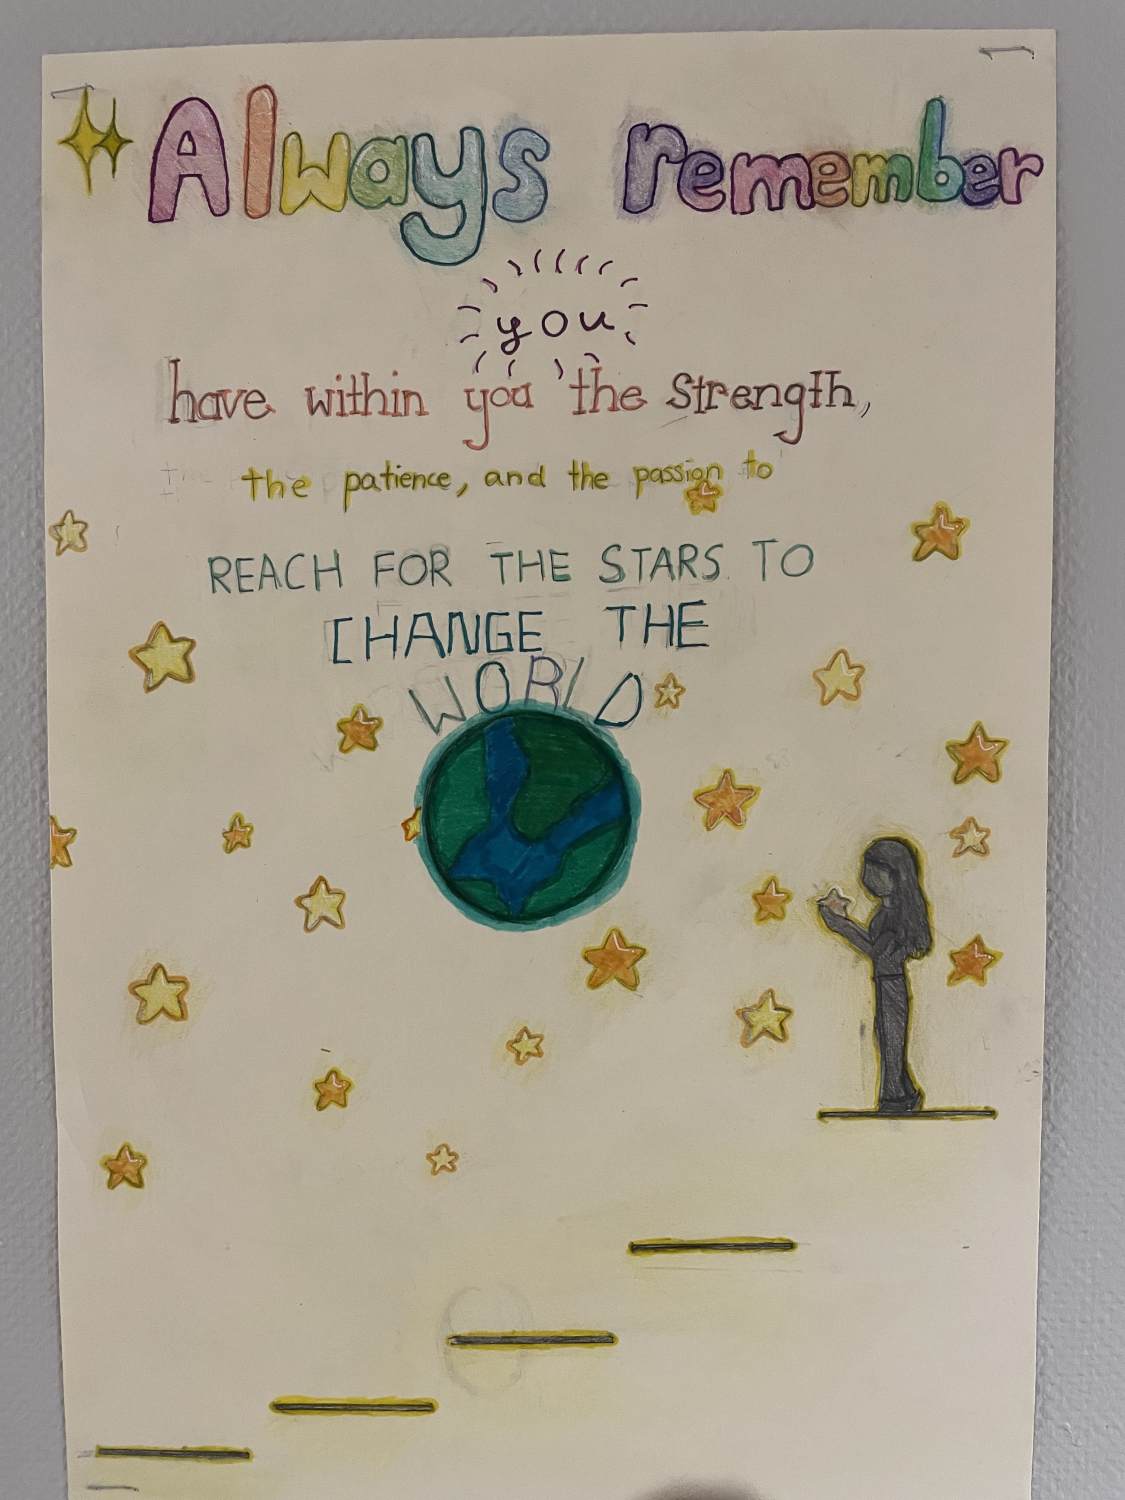 Always remember
you
have within you the strength,
the patience, and the passion to
REACH FOR THE STARS TO
CHANGE THE
WORLD